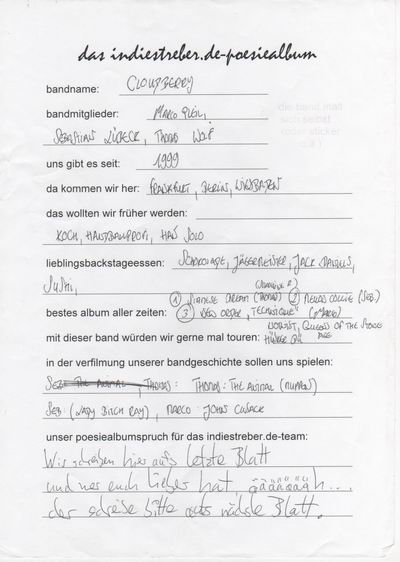 das indiestreber.de-poesiealbum
bandname: CLOUDBERRY
bandmitglieder: MARCO PLEIL,
SEBASTIAN LÜDECK, THOMAS WOLF
die band malt
sich selbst
(oder sticker
uns gibt es seit: 1999
da kommen wir her: FRANKFURT, BERLIN, WIESBADEN
das wollten wir früher werden:
KOCH, HAUSBAUPROFI, HAN SOLO
lieblingsbackstageessen: SCHOKOLADE, JÄGERMEISTER, JACK DANIELS,
SUSHI,
① SIAMESE DREAM (THOMAS) ② (SEB.)
bestes album aller zeiten: ③ NEW ORDER, "TECHNIQUE" (MARCO)
mit dieser band würden wir gerne mal touren: HÜSKER DÜ QUEENS OF THE STONE AGE
in der verfilmung unserer bandgeschichte sollen uns spielen:
SEB: THE ANIMAL, THOMAS: THOMAS: THE ANIMAL (MUPPETS)
SEB: (LADY BITCH RAY), MARCO: JOHN CUSACK
unser poesiealbumspruch für das indiestreber.de-team:
Wir schreiben hier aufs letzte Blatt
und wer euch lieber hat, äääääääh...
der schreibe bitte aufs nächste Blatt.